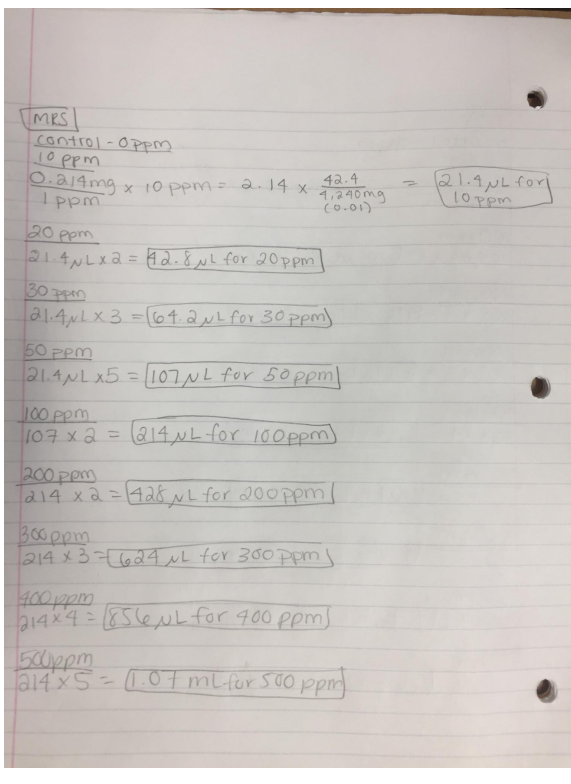 MRS
control - 0ppm
10 ppm
0.214mg/1 ppm x 10 ppm = 2.14 x 42.4/4,240mg (0.01) = 21.4 μL for 10 ppm
20 ppm
21.4μL x 2 = 42.8 μL for 20ppm
30 ppm
21.4μL x 3 = 64.2 μL for 30 ppm
50 ppm
21.4μL x5 = 107 μL for 50 ppm
100 ppm
107 x 2 = 214 μL for 100ppm
200 ppm
214 x 2 = 428 μL for 200 ppm
300 ppm
214 x 3 = 624 μL for 300 ppm
400 ppm
214x4 = 856 μL for 400 ppm
500ppm
214 x 5 = 1.07 mL for 500 ppm